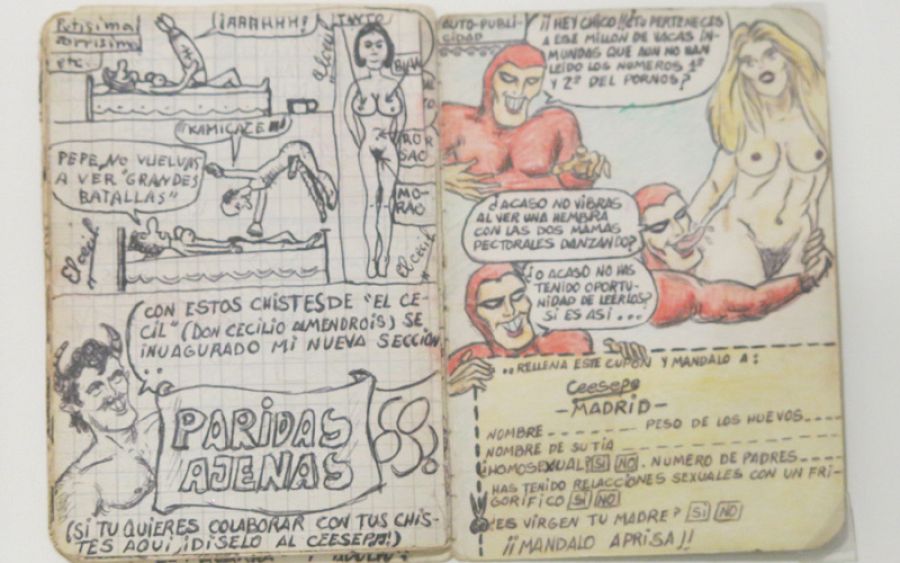 Putisima!
Porrisima
etc.
¡ARRHHH!
KAMICACE!!!
PEPE, NO VUELVAS
A VER "GRANDES
BATALLAS"
El cecil
TINTO
MO-
RAO
El cecil
CON ESTOS CHISTES DE "EL CE-
CIL" (DON CECILIO ALMENDROIS) SE
INUAGURADO MI NUEVA SECCION
PARIDAS
AJENAS
(SI TU QUIERES COLABORAR CON TUS CHIS-
TES AQUI, ¡DISELO AL CEESEPA!)
AUTO-PUBLI-
CIDAD
¡¡HEY CHICO!! ¿TU PERTENECES
A ESE MILLON DE VACAS IN-
MUNDAS QUE AUN NO HAN
LEIDO LOS NUMEROS 1º
Y 2º DEL PORNOS?
¿ACASO NO VIBRAS
AL VER UNA HEMBRA
CON LAS DOS MAMAS
PECTORALES DANZANDO?
¿O ACASO NO HAS
TENIDO OPORTU-
NIDAD DE LEERLOS?
SI ES ASI ...
..RELLENA ESTE CUPON Y MANDALO A:
Ceesepe
-MADRID-
NOMBRE PESO DE LOS HUEVOS
NOMBRE DE SU TIA
¿HOMOSEXUAL? SI NO. NUMERO DE PADRES
HAS TENIDO RELACCIONES SEXUALES CON UN FRI-
GORIFICO SI NO
¿ES VIRGEN TU MADRE? SI NO
¡¡MANDALO APRISA!!